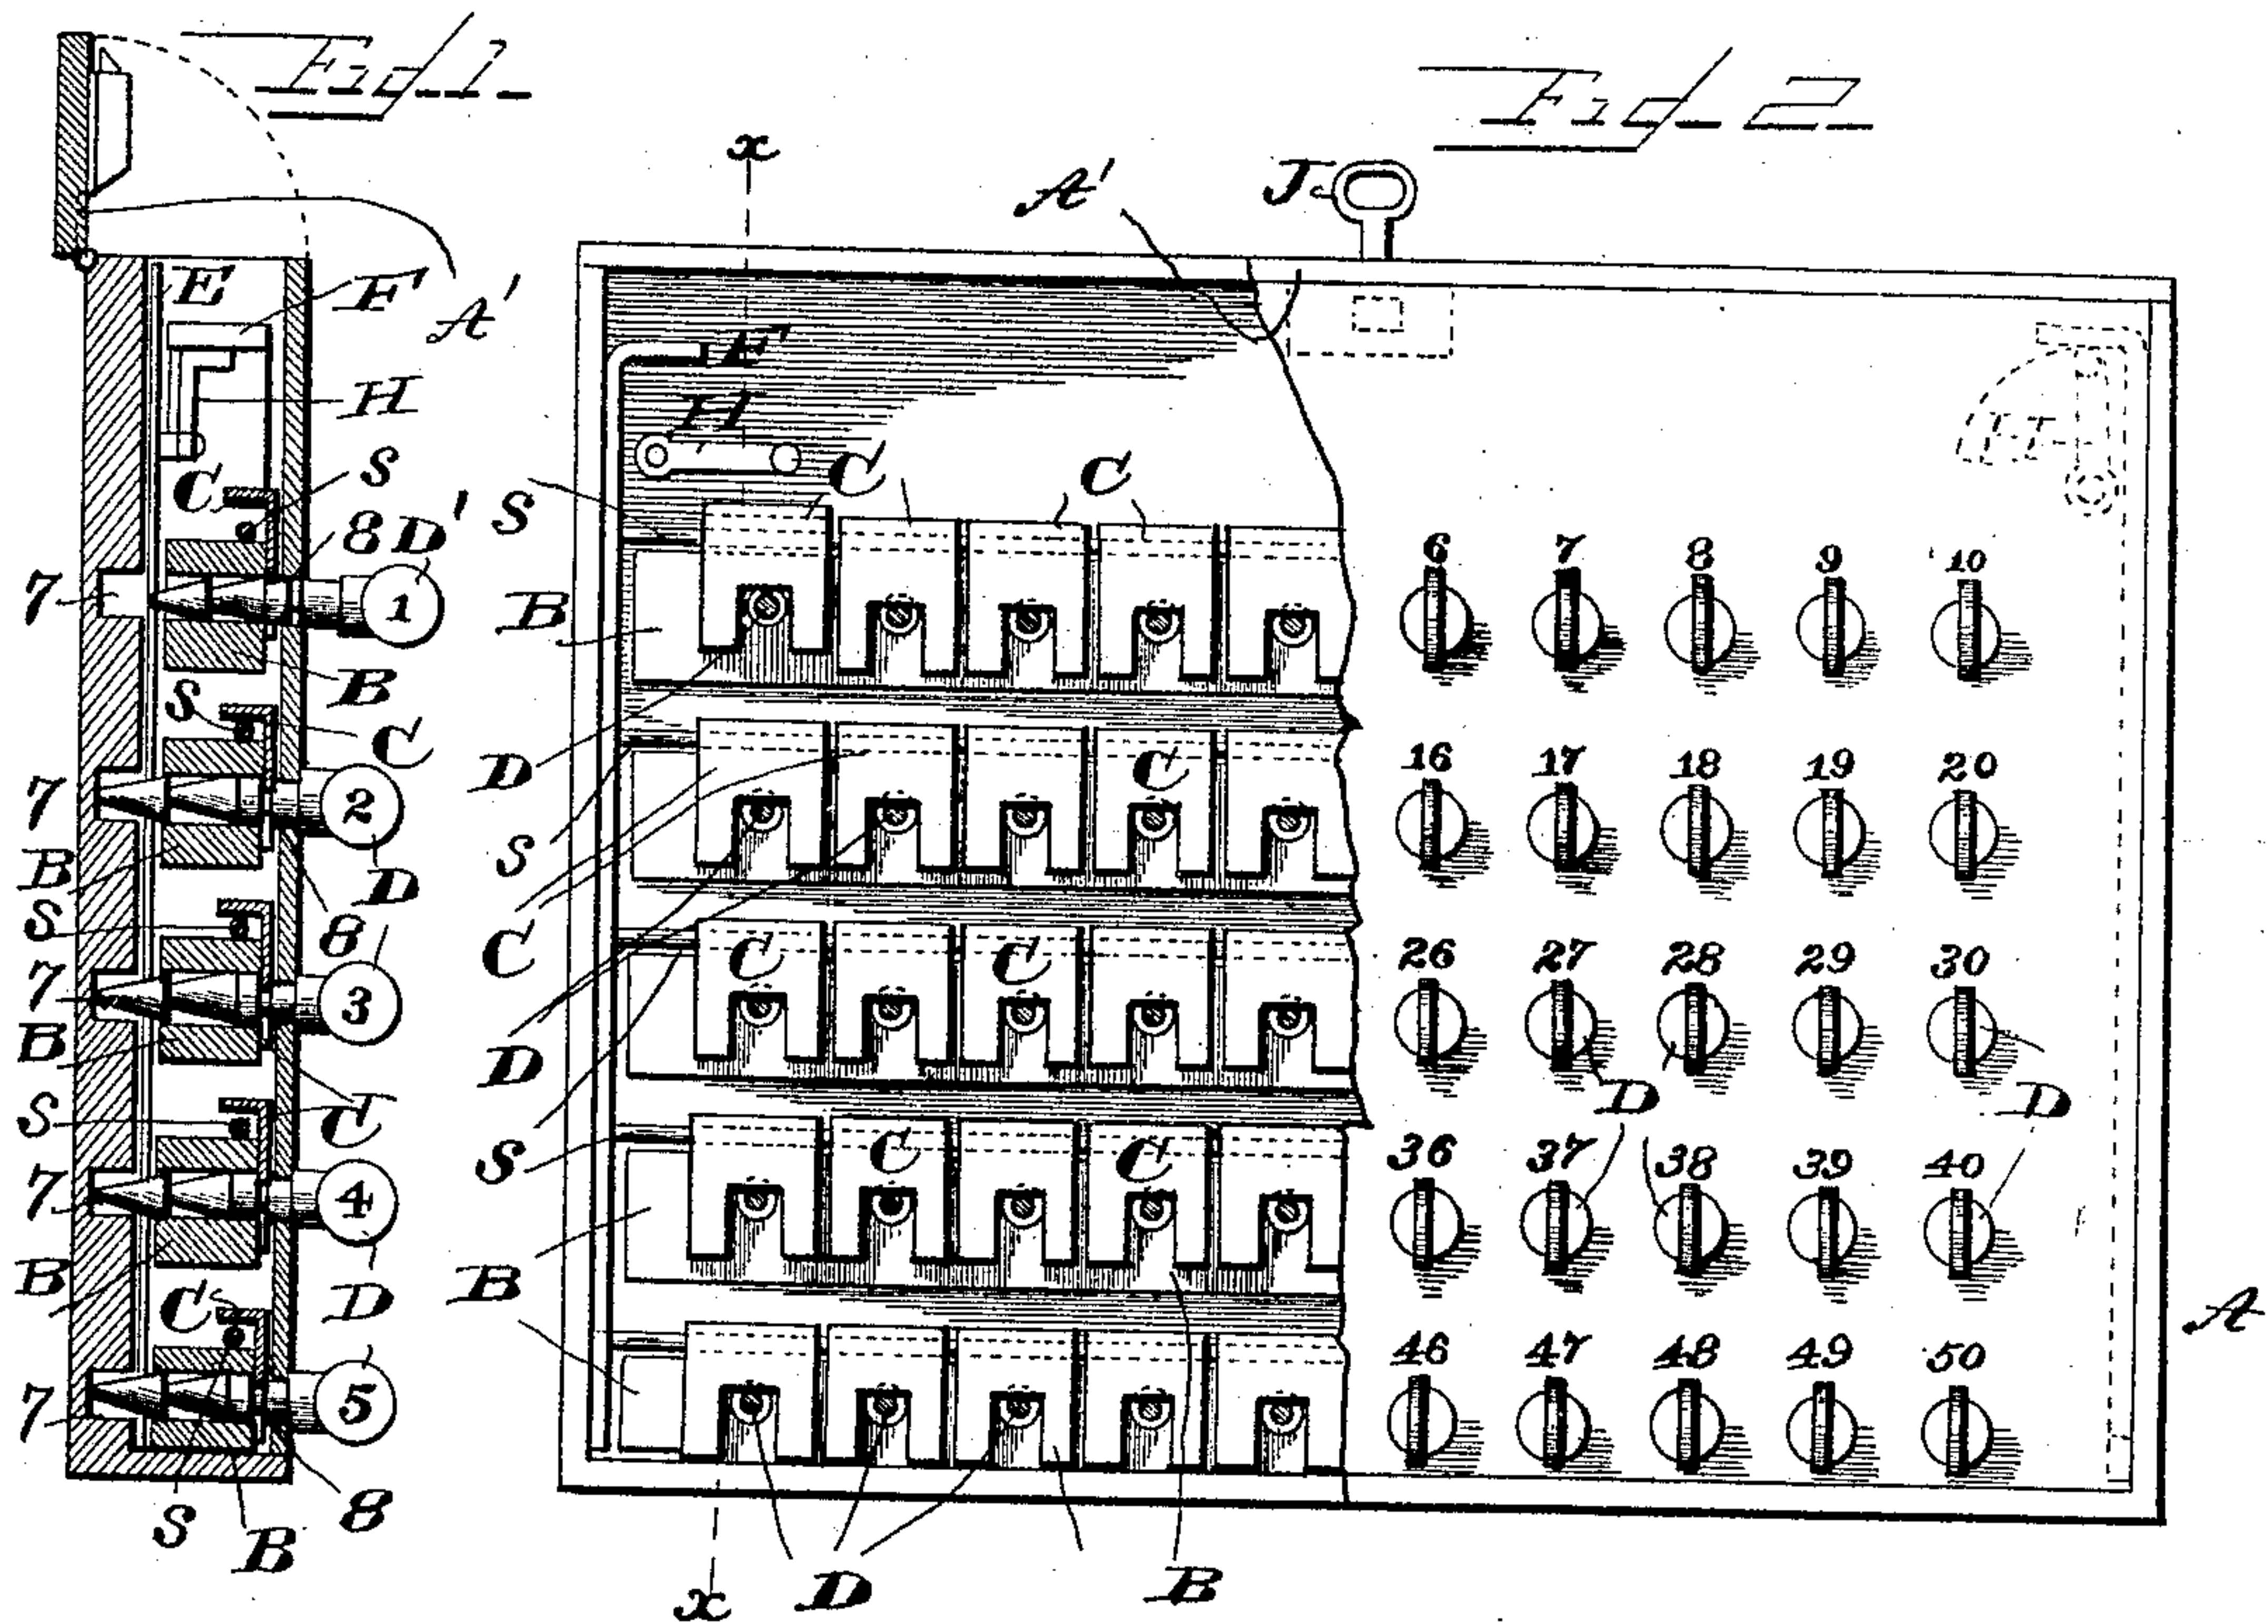 Fig. 1.
Fig. 2.
x
A'
J
E
F
A'
H
C
S
8 D'
7
1
B
S
C
7
2
B
D
S
8
7
3
B
S
C
7
4
B
D
C
7
5
S
B
8
F
H
C
C
S
B
D
S
C
C
D
C
C
S
C
C
B
B
D
x
6 7 8 9 10
16 17 18 19 20
26 27 28 29 30
D
D
36 37 38 39 40
H
A
46 47 48 49 50